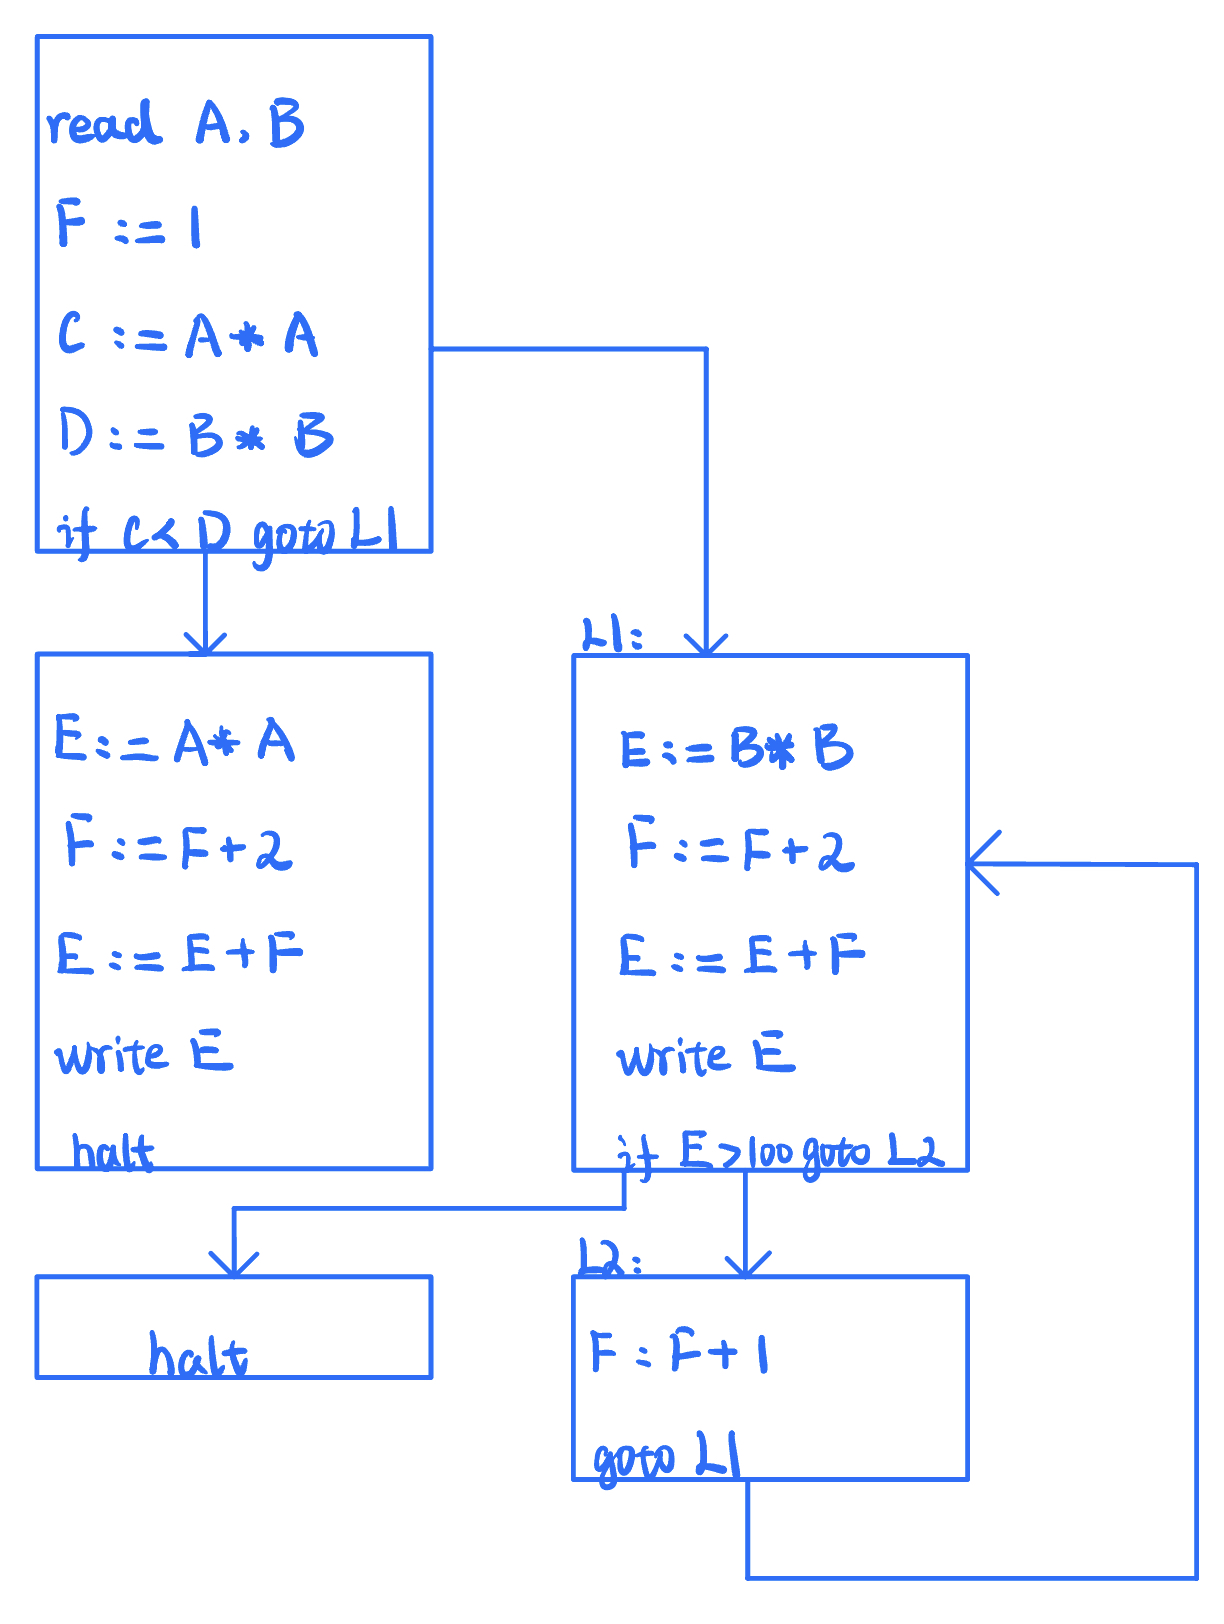 read A, B
F := 1
C := A * A
D := B * B
if C < D goto L1
E := A * A
F := F + 2
E := E + F
write E
halt
L1:
E := B * B
F := F + 2
E := E + F
write E
if E > 100 goto L2
halt
L2:
F : F + 1
goto L1